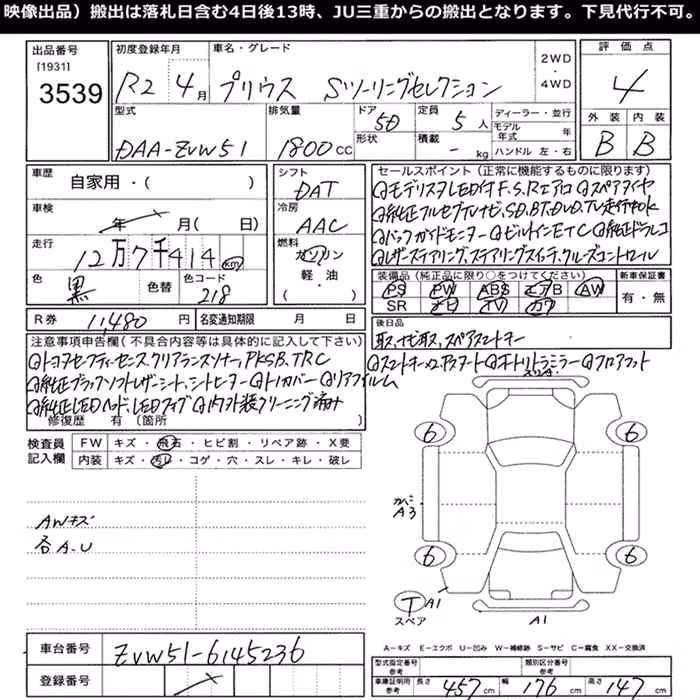 映像出品）搬出は落札日含む4日後13時、JU三重からの搬出となります。下見代行不可。
出品番号
[1931]
3539
初度登録年月
R2 4月
車名・グレード
プリウス Sツーリングセレクション
2WD
・
4WD
評価点
4
外装 内装
B B
型式
DAA-ZVW51
排気量
1800cc
ドア
形状
5D
定員 5人
積載 - kg
ディーラー・並行
モデル年式 年
ハンドル 左・右
車歴
自家用・( )
車検
年 月( 日)
走行
12万7千414 km
色
黒
色替
色コード
218
シフト
DAT
冷房
AAC
燃料
ガソリン
軽・油
( )
セールスポイント（正常に機能するものに限ります）
①モデリスタLEDｲｵF.S.Rエアロ ②スペアタイヤ
③純正フルセグTVナビ、SD、BT、DVD、TV走行中OK
④バックガイドモニター ⑤ビルトインETC ⑥純正ドラレコ
⑦レザーステアリング、ステアリングスイッチ、クルーズコントロール
装備品（純正品に限り○をつけてください）
PS PW ABS エアB AW
SR ナビ TV カワ
新車保証書
有・無
R券 11,480 円
名変通知期限 月 日
後日品
取、ナビ取、スペアスマートキー
注意事項申告欄（不具合内容等は具体的に記入して下さい）
①トヨタセーフティーセンス クリアランスソナー、PKSB、TRC
②スマートキー×2、Pスタート ③オートリトラミラー ④フロアマット
⑤純正ブラックソフトレザーシート、シートヒーター ⑥トノカバー ⑦リアフィルム
⑧純正LEDヘッド、LEDフォグ ⑨内外装クリーニング済み
修復歴 有 〔箇所 〕
検査員
記入欄
FW キズ・飛石・ヒビ割・リペア跡・X要
内装 キズ・汚レ・コゲ・穴・スレ・キレ・破レ
AWキズ
各A.U
6
6
6
6
A3
T
スペア
A1
A1
A－キズ E－エクボ U－凹み W－補修跡 S－サビ C－腐食 XX－交換済
車台番号
ZVW51-6145236
登録番号
型式指定番号
参考
類別区分番号
参考
車庫証明用
参考
長さ 457cm 幅 176cm 高さ 147cm